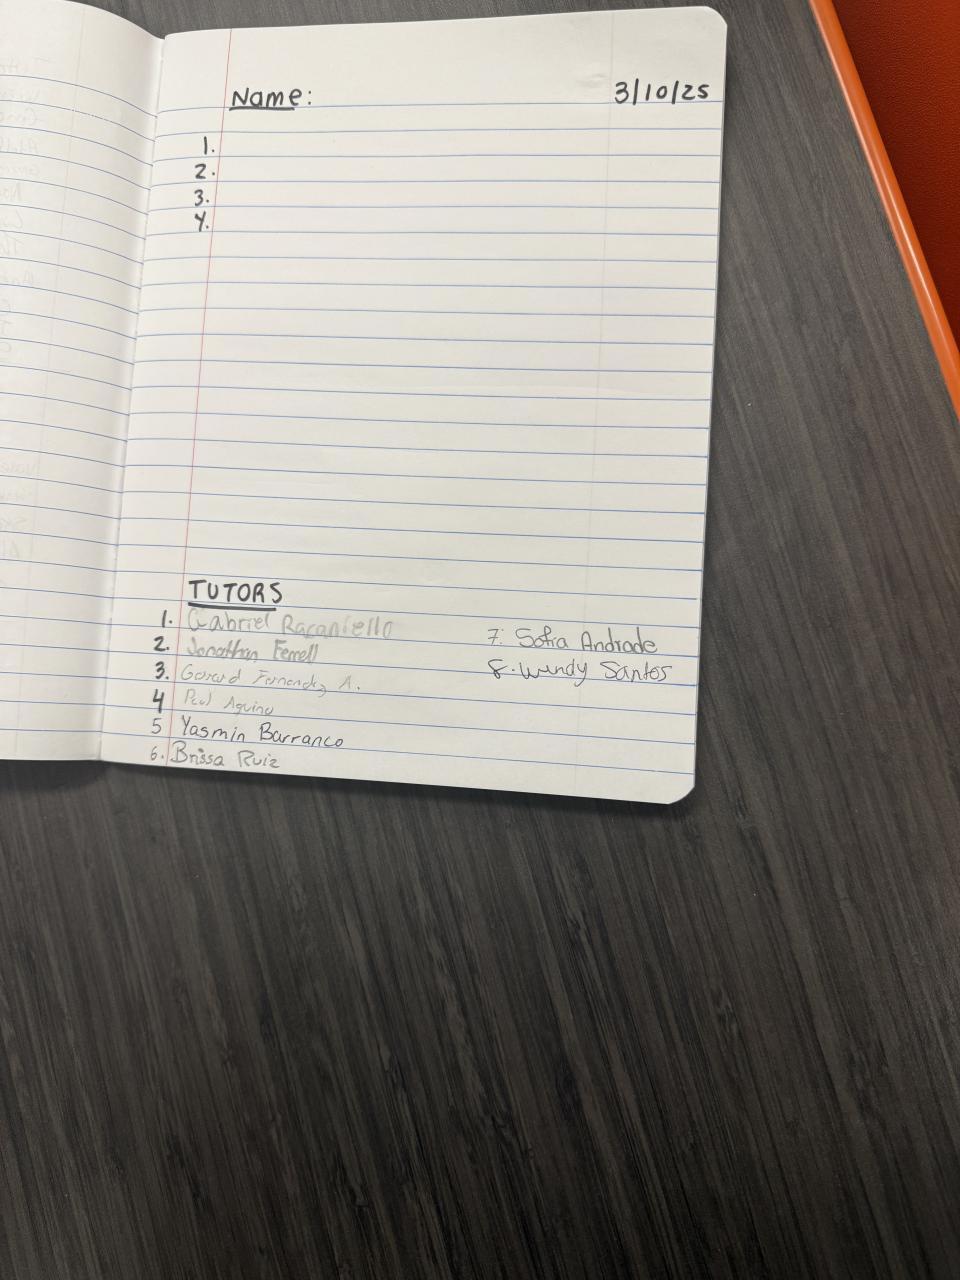 Name: 3/10/25
1.
2.
3.
4.
TUTORS
1. Gabriel Racaniello
2. Jonathan Ferrell
3. Gerard Fernandez A.
4 Paul Aquino
5 Yasmin Barranco
6. Brissa Ruiz
7. Sofia Andrade
8. Wendy Santos